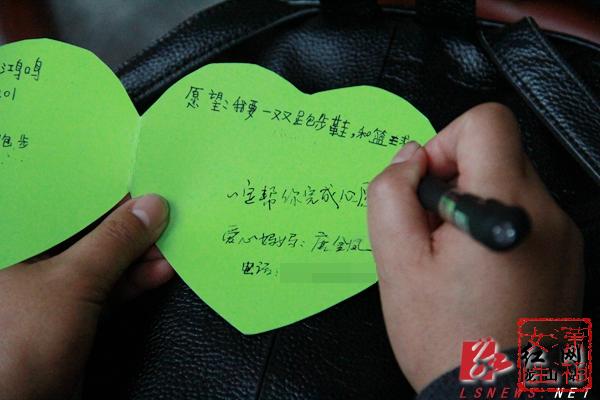 鸿鸣
01
跑步
愿望:我要一双跑步鞋,和篮球
一定帮你完成心
爱心妈妈:唐金凤
电话:
红网
LSNEWS.NET